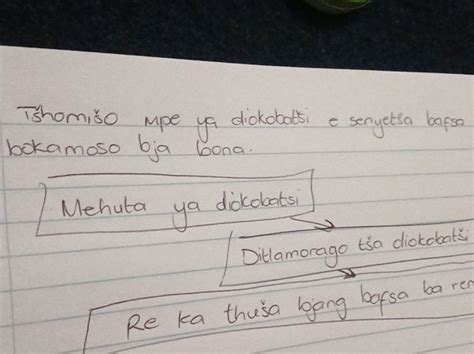 Tšhomišo mpe ya diokobatši e senyetša bafsa
bokamoso bja bona.
Mehuta ya diokobatsi
Ditlamorago tša diokobatši
Re ka thuša bjang bafsa ba ren